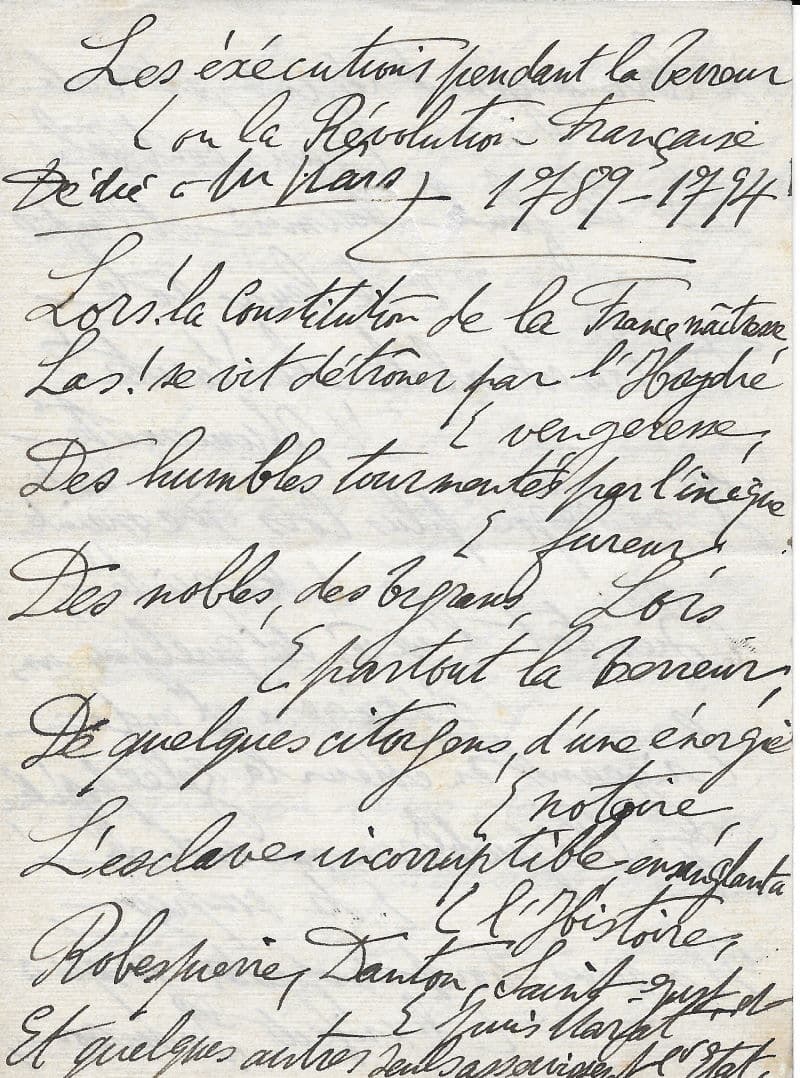 Les éxécutions pendant la Terreur
( ou la Révolution Française
Dédié à Mr 1789-1794
Lors! la Constitution de la France maîtresse,
Las! se vit détrôner par l'Haydié
( vengeresse,
Des humbles tourmentés par l'inique
( fureur,
Des nobles, des tyrans, Lors
( partout la Terreur,
De quelques citoyens, d'une énergie
( notoire,
L'esclave incorruptible, ensanglanta
( l'Histoire,
Robespierre, Danton, Saint-Just, et
( puis Marat
Et quelques autres seuls l'Etat,